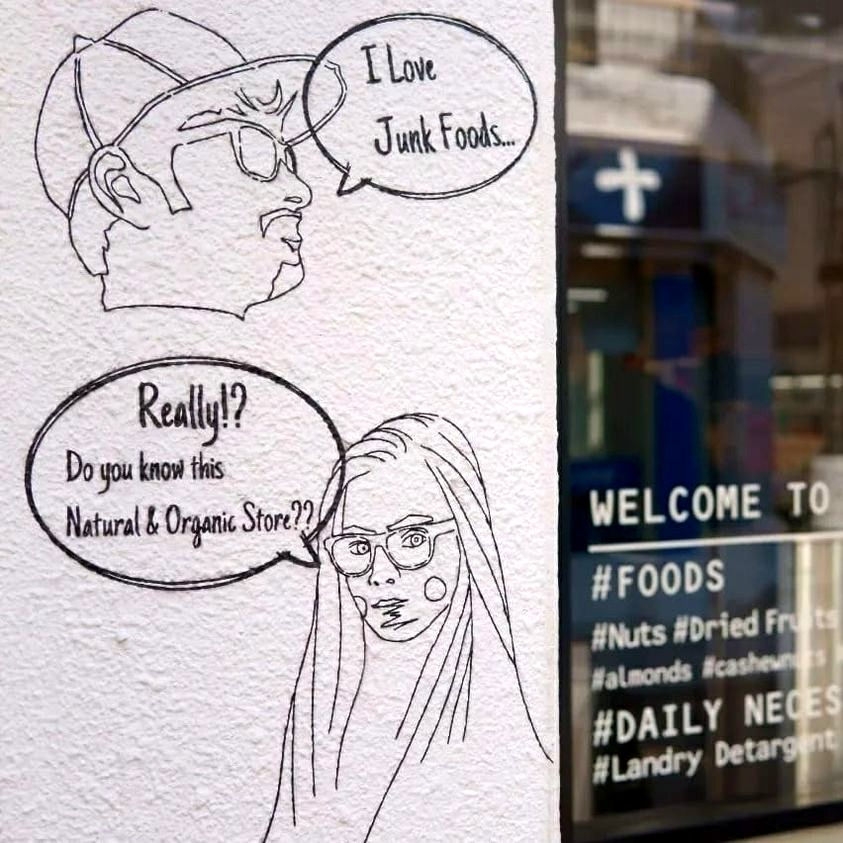 I Love
Junk Foods...
Really!?
Do you know this
Natural & Organic Store??
WELCOME TO
#FOODS
#Nuts #Dried Fruits
#almonds #cashewnuts
#DAILY NECES
#Landry Detargent